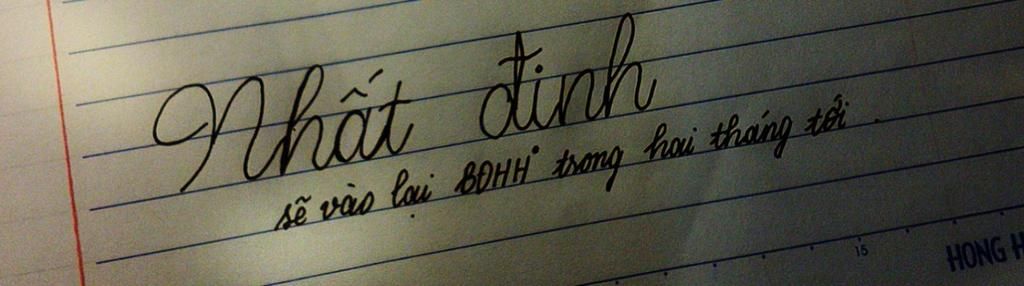 Nhất định
sẽ vào lại BDHH° trong hai tháng tới.
15
HONG H